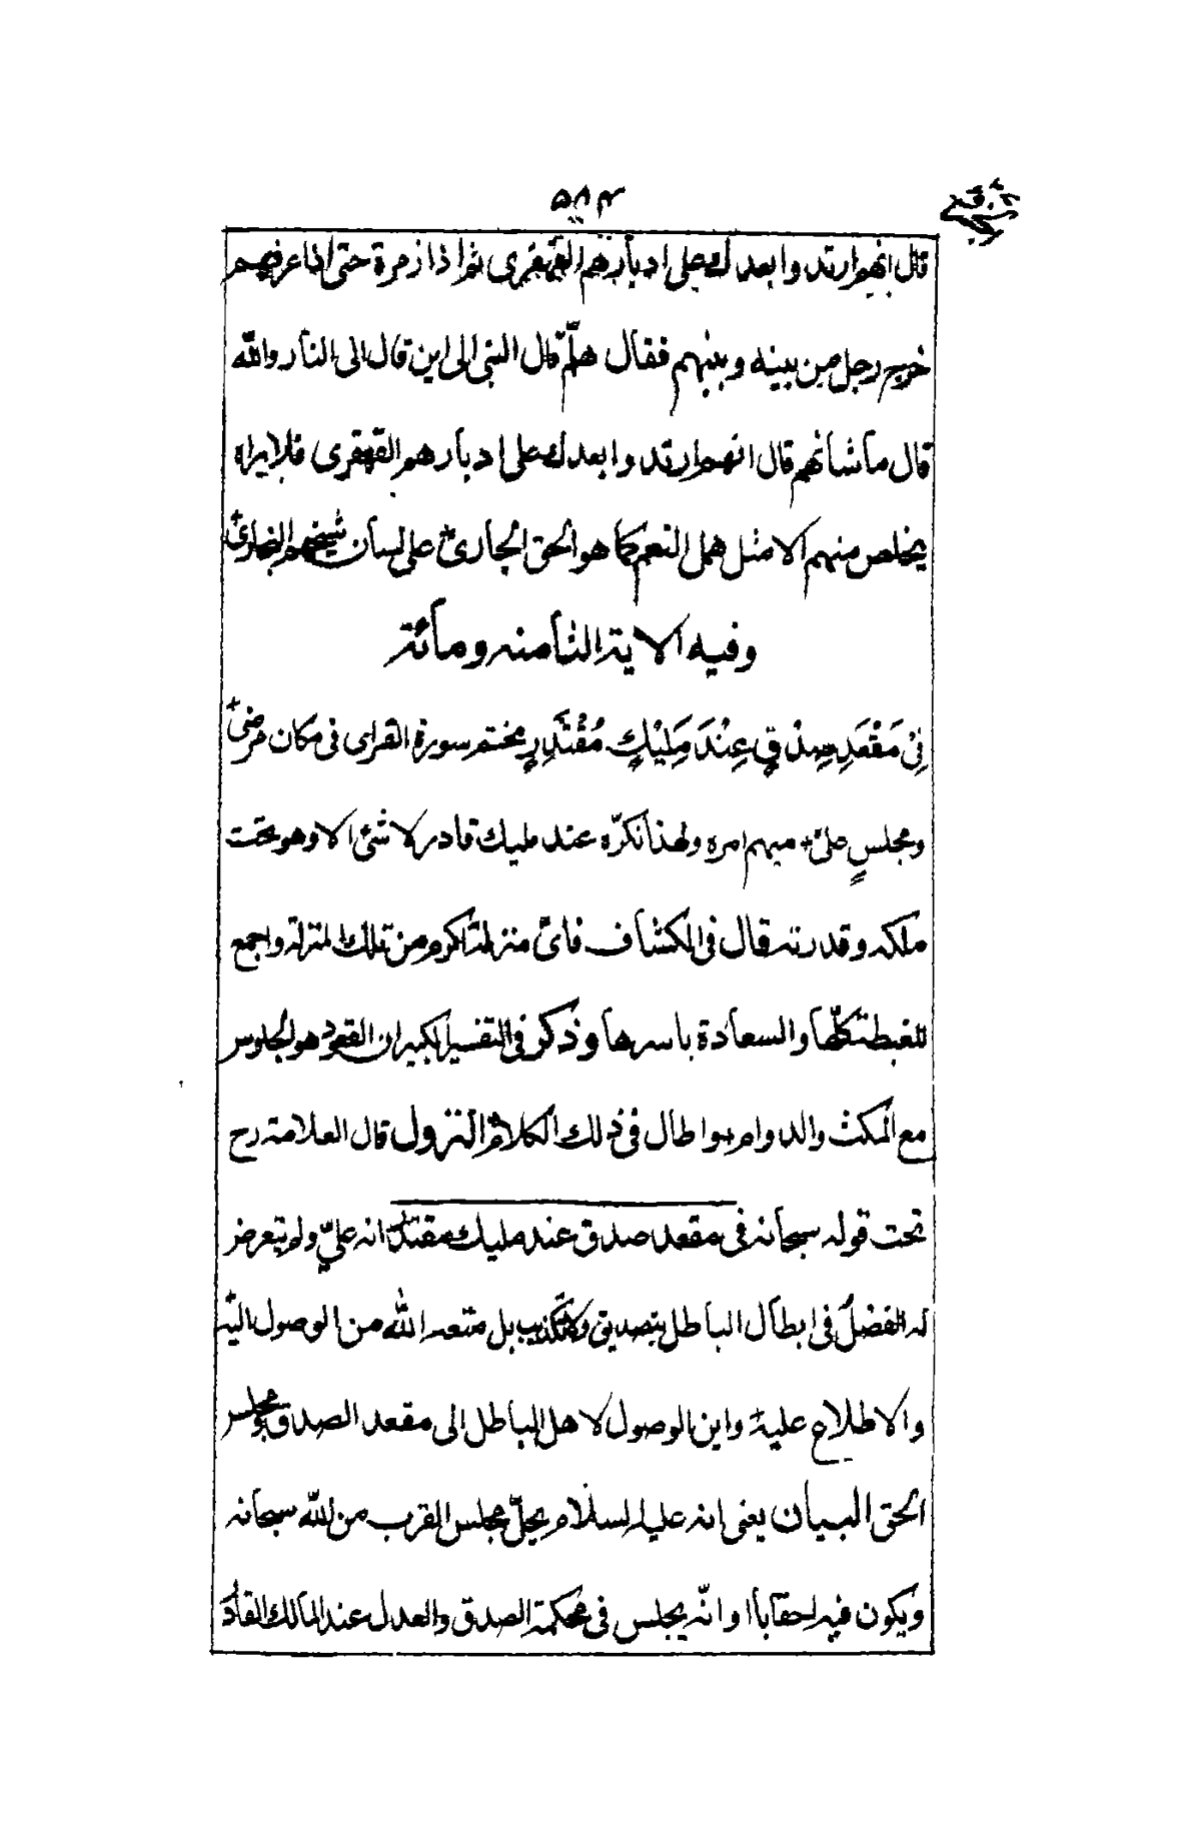 ۵۸۴
قال انهم ارتدوا بعدك على ادبارهم القهقرى ثم اذا زمرة حتى اذا عرفتهم
خرج رجل من بينه وبينهم فقال هلمّ قال النبى الى اين قال الى النار والله
قال ما شانهم قال انهم ارتدوا بعدك على ادبارهم القهقرى فلا يراه
يخلص منهم الا مثل همل النعم كما هو الحق الجارى على لسان شيخهم البخارى
وفيه الاية الثامنه ومائة
فِىْ مَقْعَدِ صِدْقٍ عِنْدَ مَلِيْكٍ مُقْتَدِرٍ مختتم سورة القراى فى مكان مرضىّ
ومجلسٍ علىّ مبهم امره ولهذا نكرّه عند مليك قادر لا شئ الا وهو تحت
ملكه وقدرته قال فى الكشاف فاىّ منزلة اكرم من تلك المنزلة واجمع
للغبطة كلّها والسعادة باسرها وذكر فى التفسير الكبير ان القعود هو الجلوس
مع المكث والدوام واطال فى ذلك الكلام النزول قال العلامة رح
تحت قوله سبحانه فى مقعد صدق عند مليك مقتدر انه علىّ ولم يتعرض
له الفضل فى ابطال الباطل بتصديق وكا تكذيب بل منعه الله من الوصول اليه
والاطلاع عليه واين الوصول لاهل الباطل الى مقعد الصدق ومجلس
الحق البيان يعنى انه عليه السلام يحلّ مجلس القرب من الله سبحانه
ويكون فيه احقابا وانّه يجلس فى محكمة الصدق والعدل عند المالك القاد